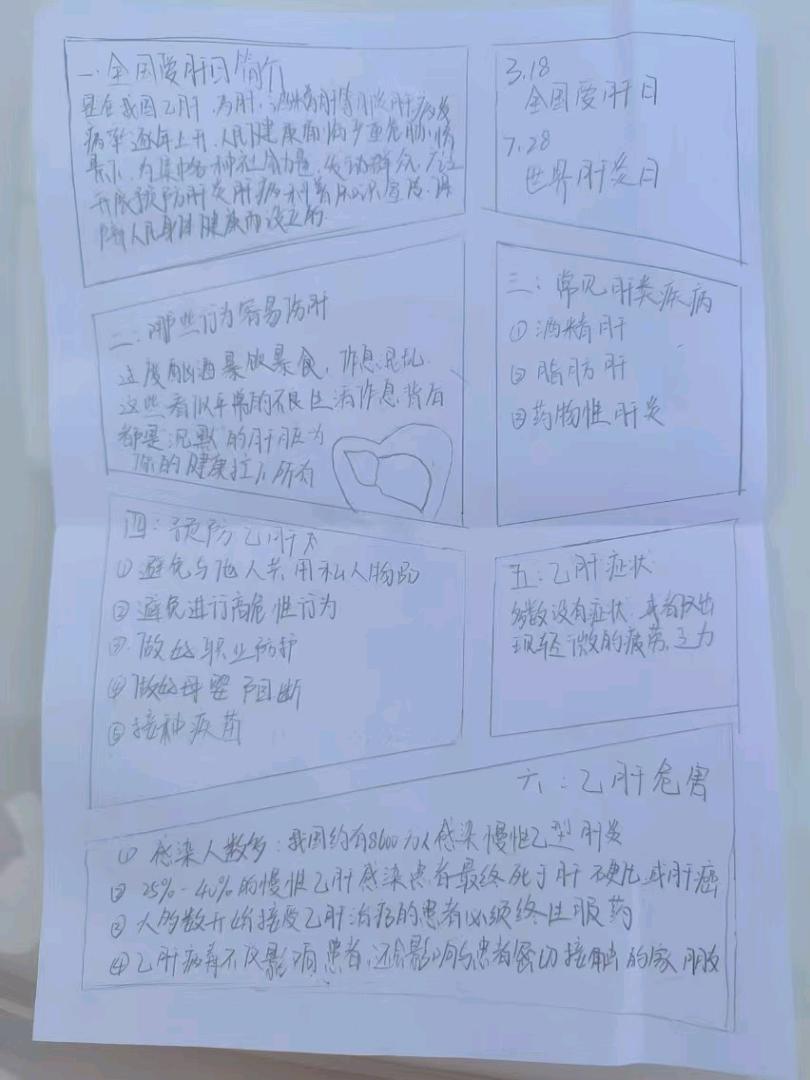 一.全国爱肝日简介
是在我国乙肝.丙肝.酒精肝等肝脏肝病发
病率逐年上升,人民健康面临严重危胁情
景下,为集中各种社会力量,发动群众,广泛
开展预防肝炎肝病科普知识宣传,保
障人民身体健康而设立的
3.18
全国爱肝日
7.28
世界肝炎日
二.哪些行为容易伤肝
过度酗酒暴饮暴食,作息混乱
这些看似平常的不良生活作息背后
都是沉默的肝脏为
你的健康
三:常见肝类疾病
①酒精肝
②脂肪肝
③药物性肝炎
四:预防乙肝
①避免与他人共用私人物品
②避免进行高危性行为
③做好职业防护
④做好母婴阻断
⑤接种疫苗
五:乙肝症状
多数没有症状,或者仅出
现轻微的疲劳,乏力
六:乙肝危害
① 感染人数多:我国约有8600万人感染慢性乙型肝炎
② 25%-40%的慢性乙肝感染患者最终死于肝硬化或肝癌
③ 大多数开始接受乙肝治疗的患者必须终生服药
④乙肝病毒不仅影响患者,还会影响与患者密切接触的家